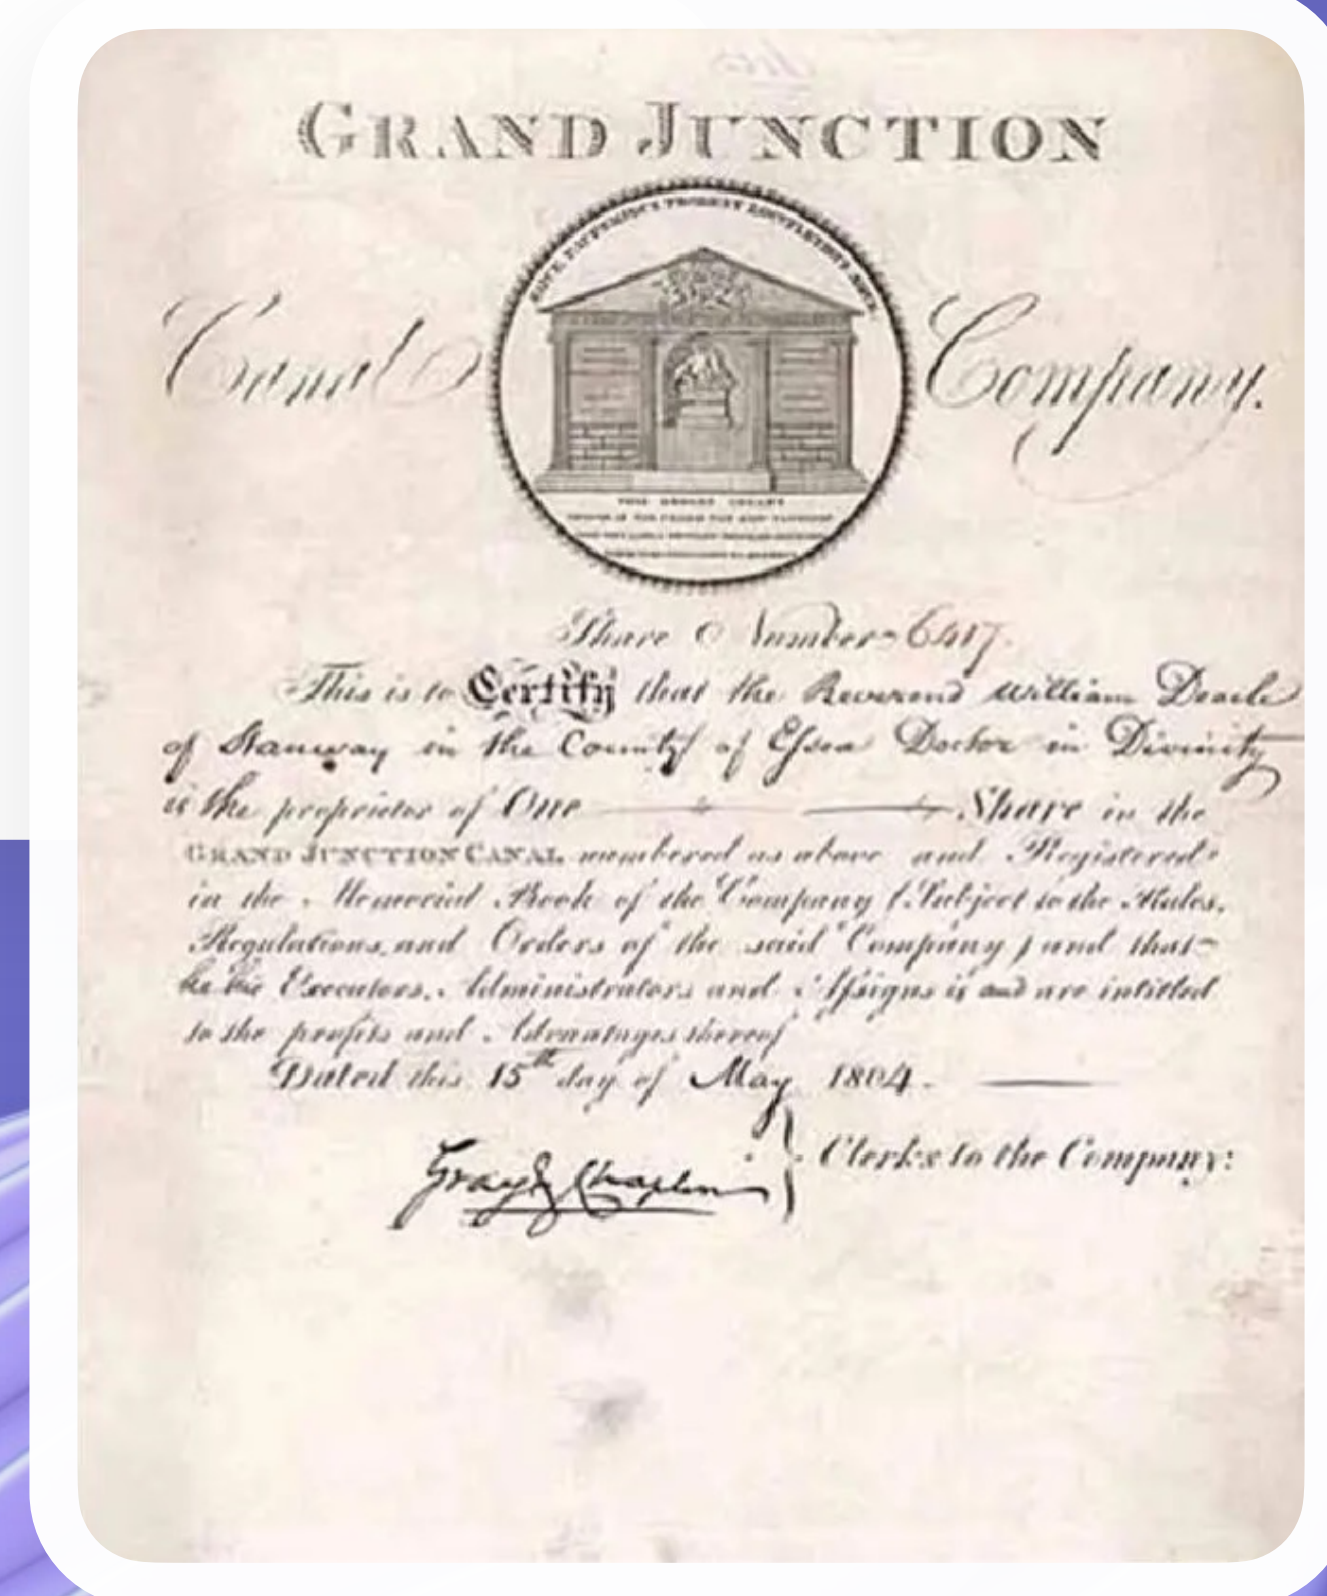 GRAND JUNCTION
Canal Company.
Share Number 6417.
This is to Certify that the Reverend William
of Stanway in the County of Essex Doctor in Divinity
is the proprietor of One Share in the
GRAND JUNCTION CANAL numbered as above and Registered
in the Memorial Book of the Company (Subject to the Rules,
Regulations, and Orders of the said Company) and that
he his Executors, Administrators and Assigns is and are intitled
to the profits and Advantages thereof
Dated this 15th day of May 1804.
Gray & Chaplin } Clerks to the Company: